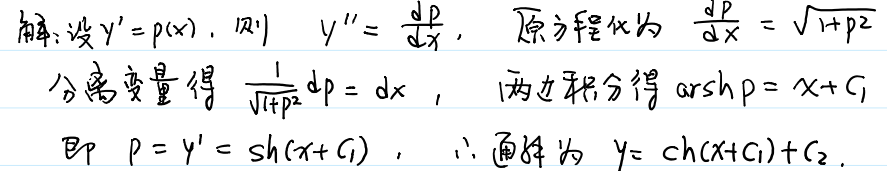 解:设y'=p(x),则 y''=dp/dx, 原方程化为 dp/dx=√(1+p²)
分离变量得 1/√(1+p²) dp=dx, 两边积分得 arsh p=x+C₁
即 p=y'=sh(x+C₁), ∴通解为 y=ch(x+C₁)+C₂.